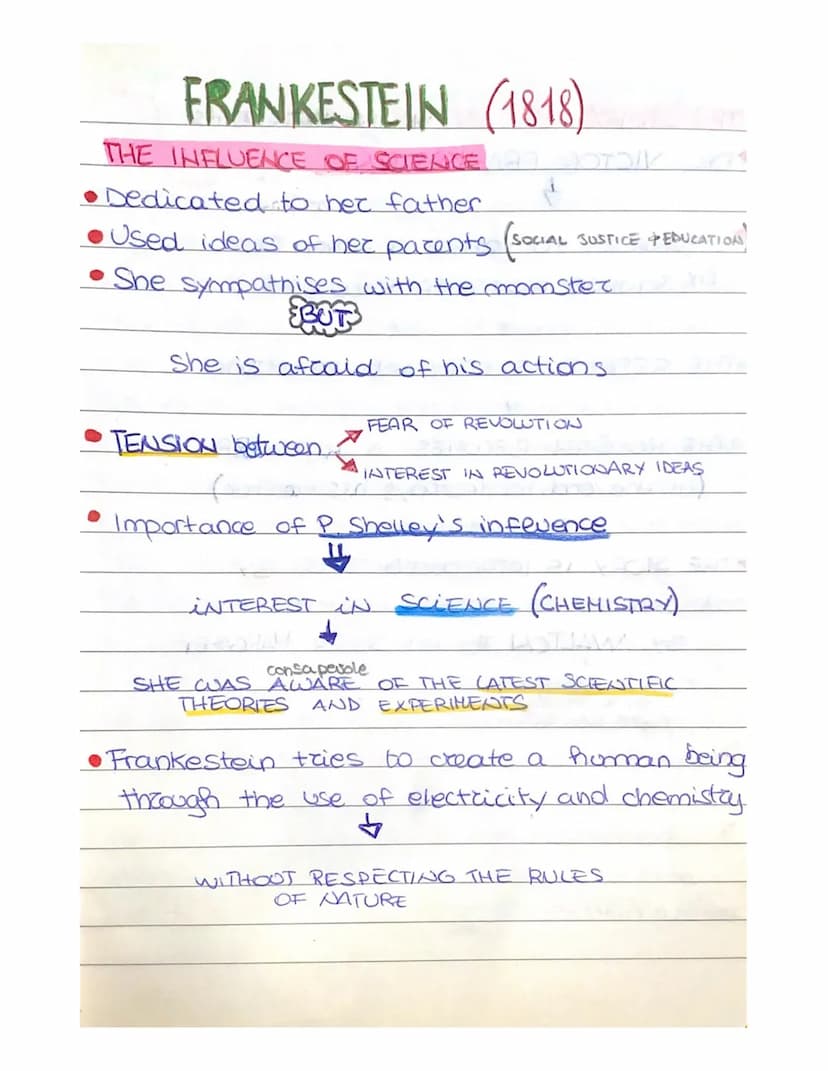 FRANKESTEIN (1818)
THE INFLUENCE OF SCIENCE
• Dedicated to her father
• Used ideas of her parents (SOCIAL JUSTICE + EDUCATION)
• She sympathises with the momster
BUT
She is afraid of his actions
FEAR OF REVOLUTION
• TENSION between
INTEREST IN REVOLUTIONARY IDEAS
• Importance of P. Shelley's infevence
INTEREST IN SCIENCE (CHEMISTRY)
consapevole
SHE WAS AWARE OF THE LATEST SCIENTIFIC
THEORIES AND EXPERIMENTS
• Frankestein tries to create a human being
through the use of electricity and chemistry
WITHOUT RESPECTING THE RULES
OF NATURE